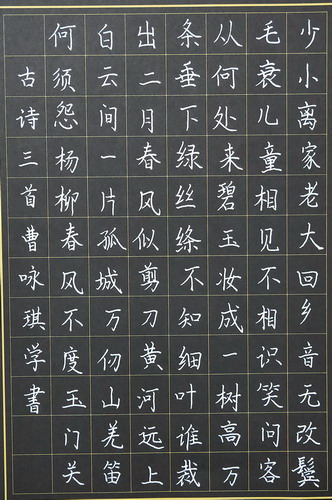 少小离家老大回乡音无改鬓
毛衰儿童相见不相识笑问客
从何处来碧玉妆成一树高万
条垂下绿丝绦不知细叶谁裁
出二月春风似剪刀黄河远上
白云间一片孤城万仞山羌笛
何须怨杨柳春风不度玉门关
古诗三首曹咏琪学书